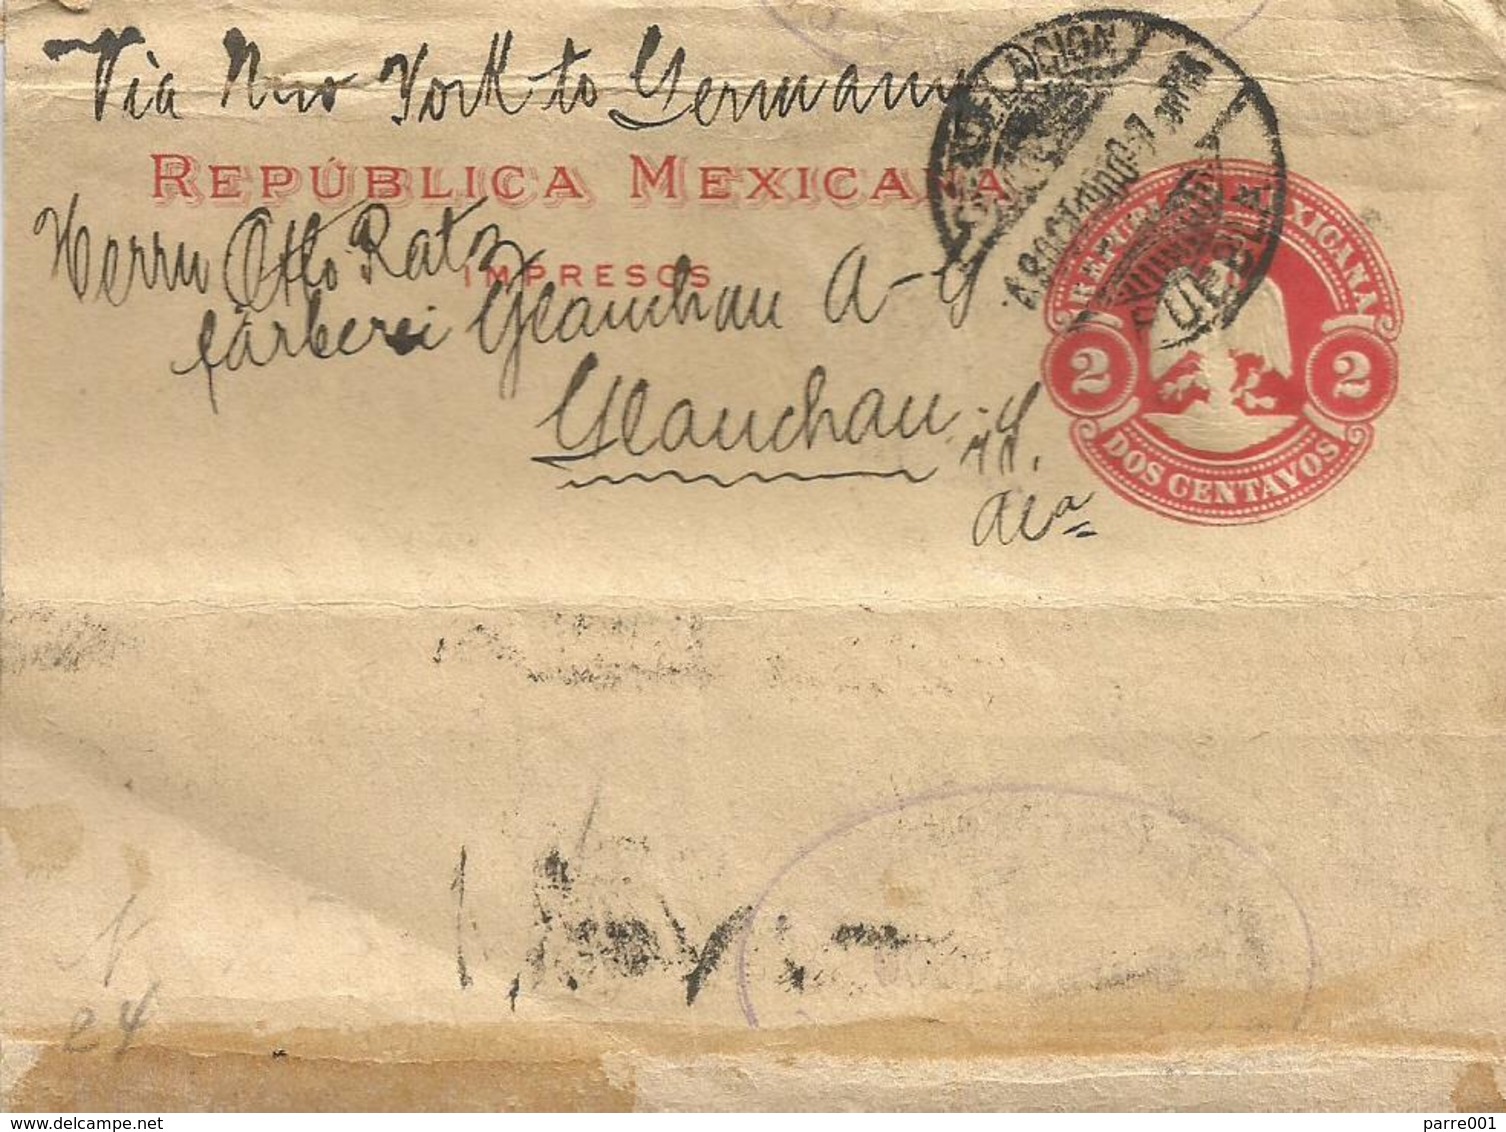 Via New York to Germany
REPÚBLICA MEXICANA
IMPRESOS
Herrn Otto Ratz
färberei Glauchau A-G
Glauchau i/S.
REPUBLICA MEXICANA
2 2
DOS CENTAVOS
24
delcampe.net
parre001